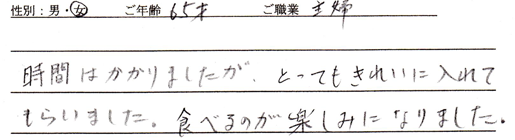 性別：男・女 ご年齢 65才 ご職業 主婦
時間はかかりましたが、とってもきれいに入れて
もらいました。食べるのが楽しみになりました。